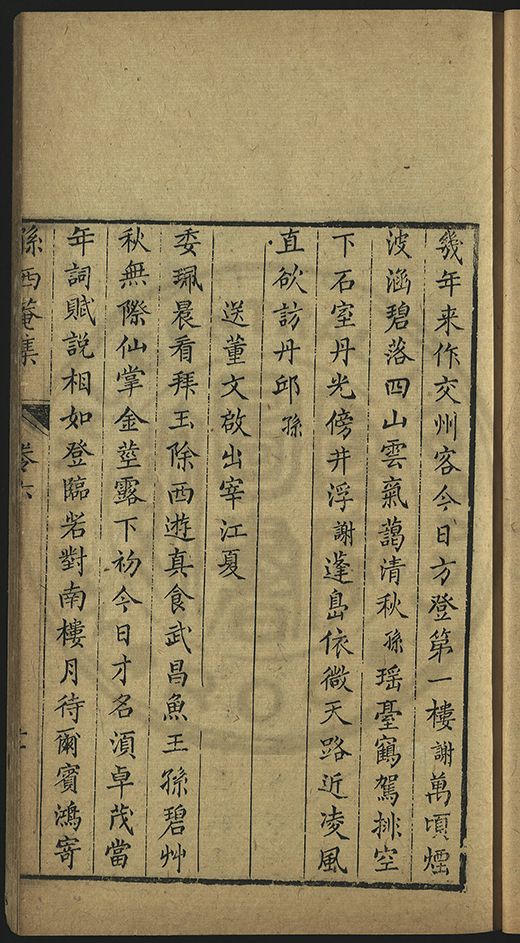 幾年来作交州客今日方登第一樓謝萬頃煙
波涵碧落四山雲氣藹清秋孫瑶臺鶴駕排空
下石室丹光傍井浮謝蓬島依微天路近凌風
直欲訪丹邱孫
送董文啟出宰江夏
委珮晨看拜玉除西遊真食武昌魚王孫碧艸
秋無際仙掌金莖露下初今日才名湏卓茂當
年詞賦説相如登臨若對南樓月待爾賓鴻寄
孫西菴集
卷六